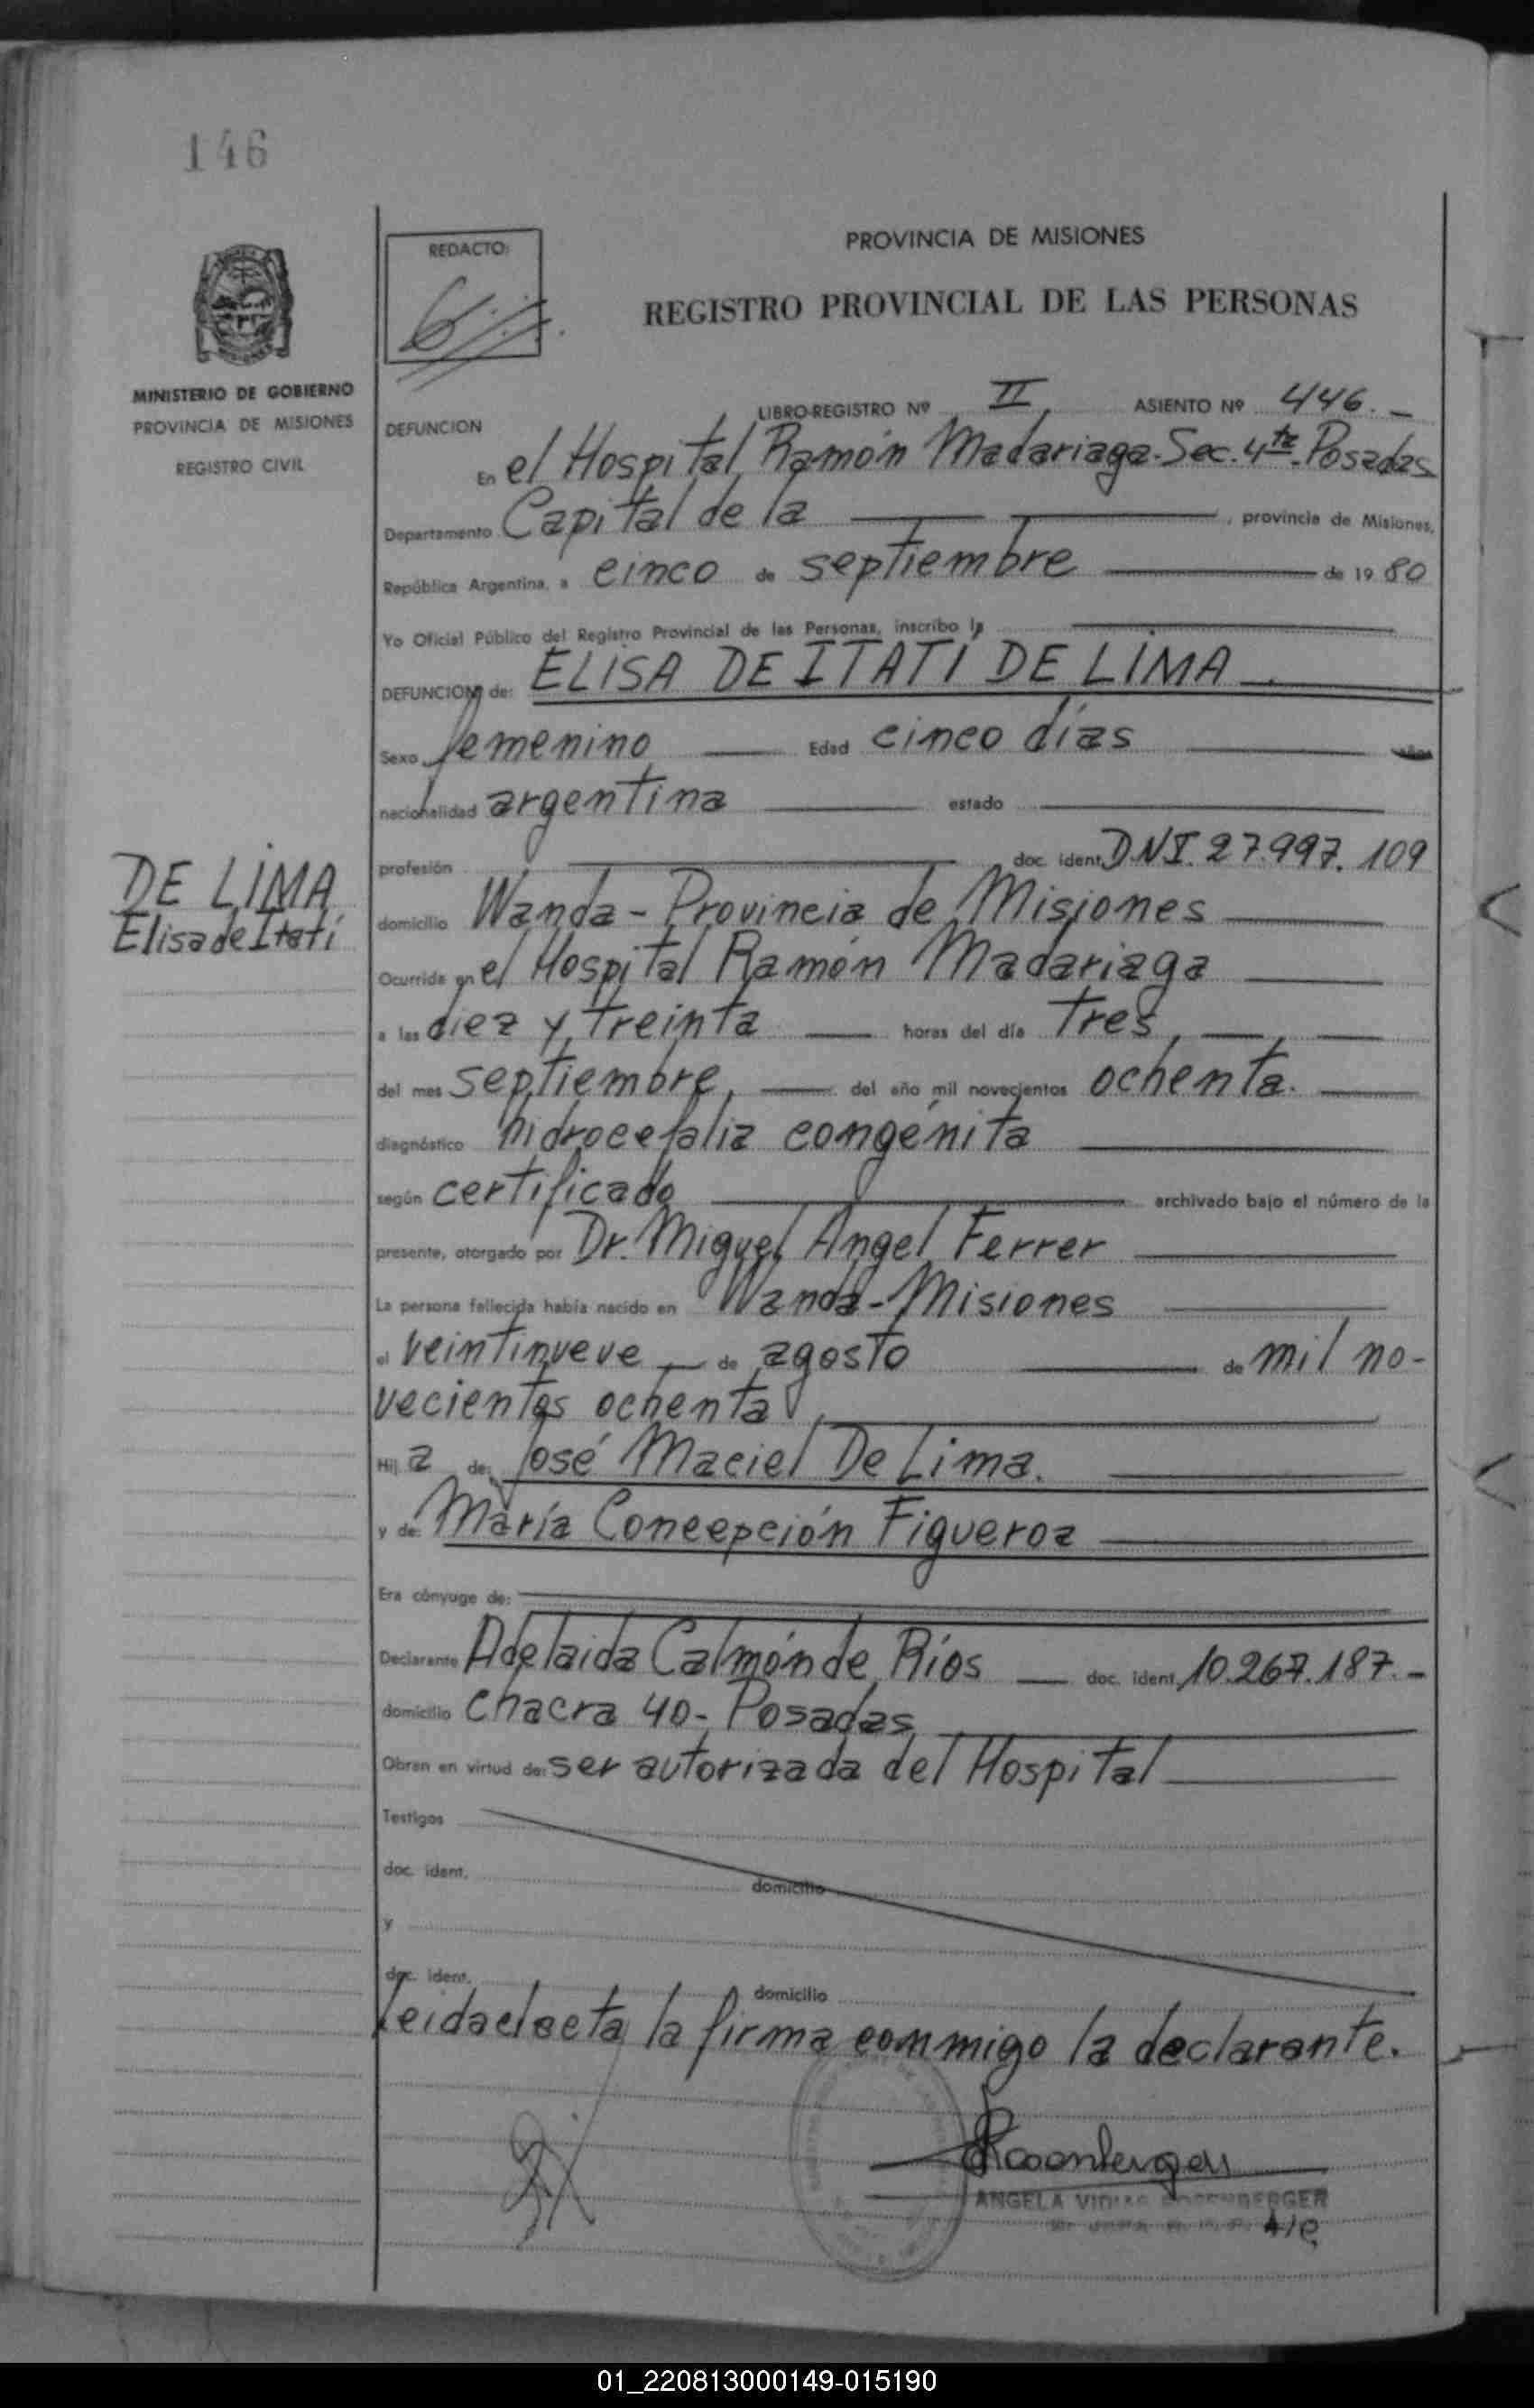 146
REDACTO:
PROVINCIA DE MISIONES
REGISTRO PROVINCIAL DE LAS PERSONAS
MINISTERIO DE GOBIERNO
PROVINCIA DE MISIONES
REGISTRO CIVIL
LIBRO-REGISTRO Nº II, ASIENTO Nº 446.-
DEFUNCION
En el Hospital Ramón Madariaga-Sec. 4ta. Posadas
Departamento Capital de la , provincia de Misiones,
República Argentina, a cinco de septiembre de 1980
Yo Oficial Público del Registro Provincial de las Personas, inscribo la
DEFUNCION de: ELISA DE ITATÍ DE LIMA
Sexo femenino Edad cinco días años
nacionalidad argentina estado
profesión doc. ident. D.N.I. 27.997.109
DE LIMA
Elisa de Itatí
domicilio Wanda - Provincia de Misiones
Ocurrida en el Hospital Ramón Madariaga
a las diez y treinta horas del día tres,
del mes septiembre, del año mil novecientos ochenta.
diagnóstico hidrocefalia congénita
según certificado archivado bajo el número de la
presente, otorgado por Dr. Miguel Angel Ferrer
La persona fallecida había nacido en Wanda-Misiones
el veintinueve de agosto de mil no-
vecientos ochenta
Hij a de: José Maciel De Lima.
y de: María Concepción Figueroa
Era cónyuge de:
Declarante Adelaida Calmón de Ríos doc. ident. 10.267.187.-
domicilio Chacra 40- Posadas
Obran en virtud de: ser autorizada del Hospital
Testigos
doc. ident. domicilio
y
doc. ident. domicilio
Leida el acta la firma conmmigo la declarante.
ANGELA ROSENBERGER
A/C
01_220813000149-015190